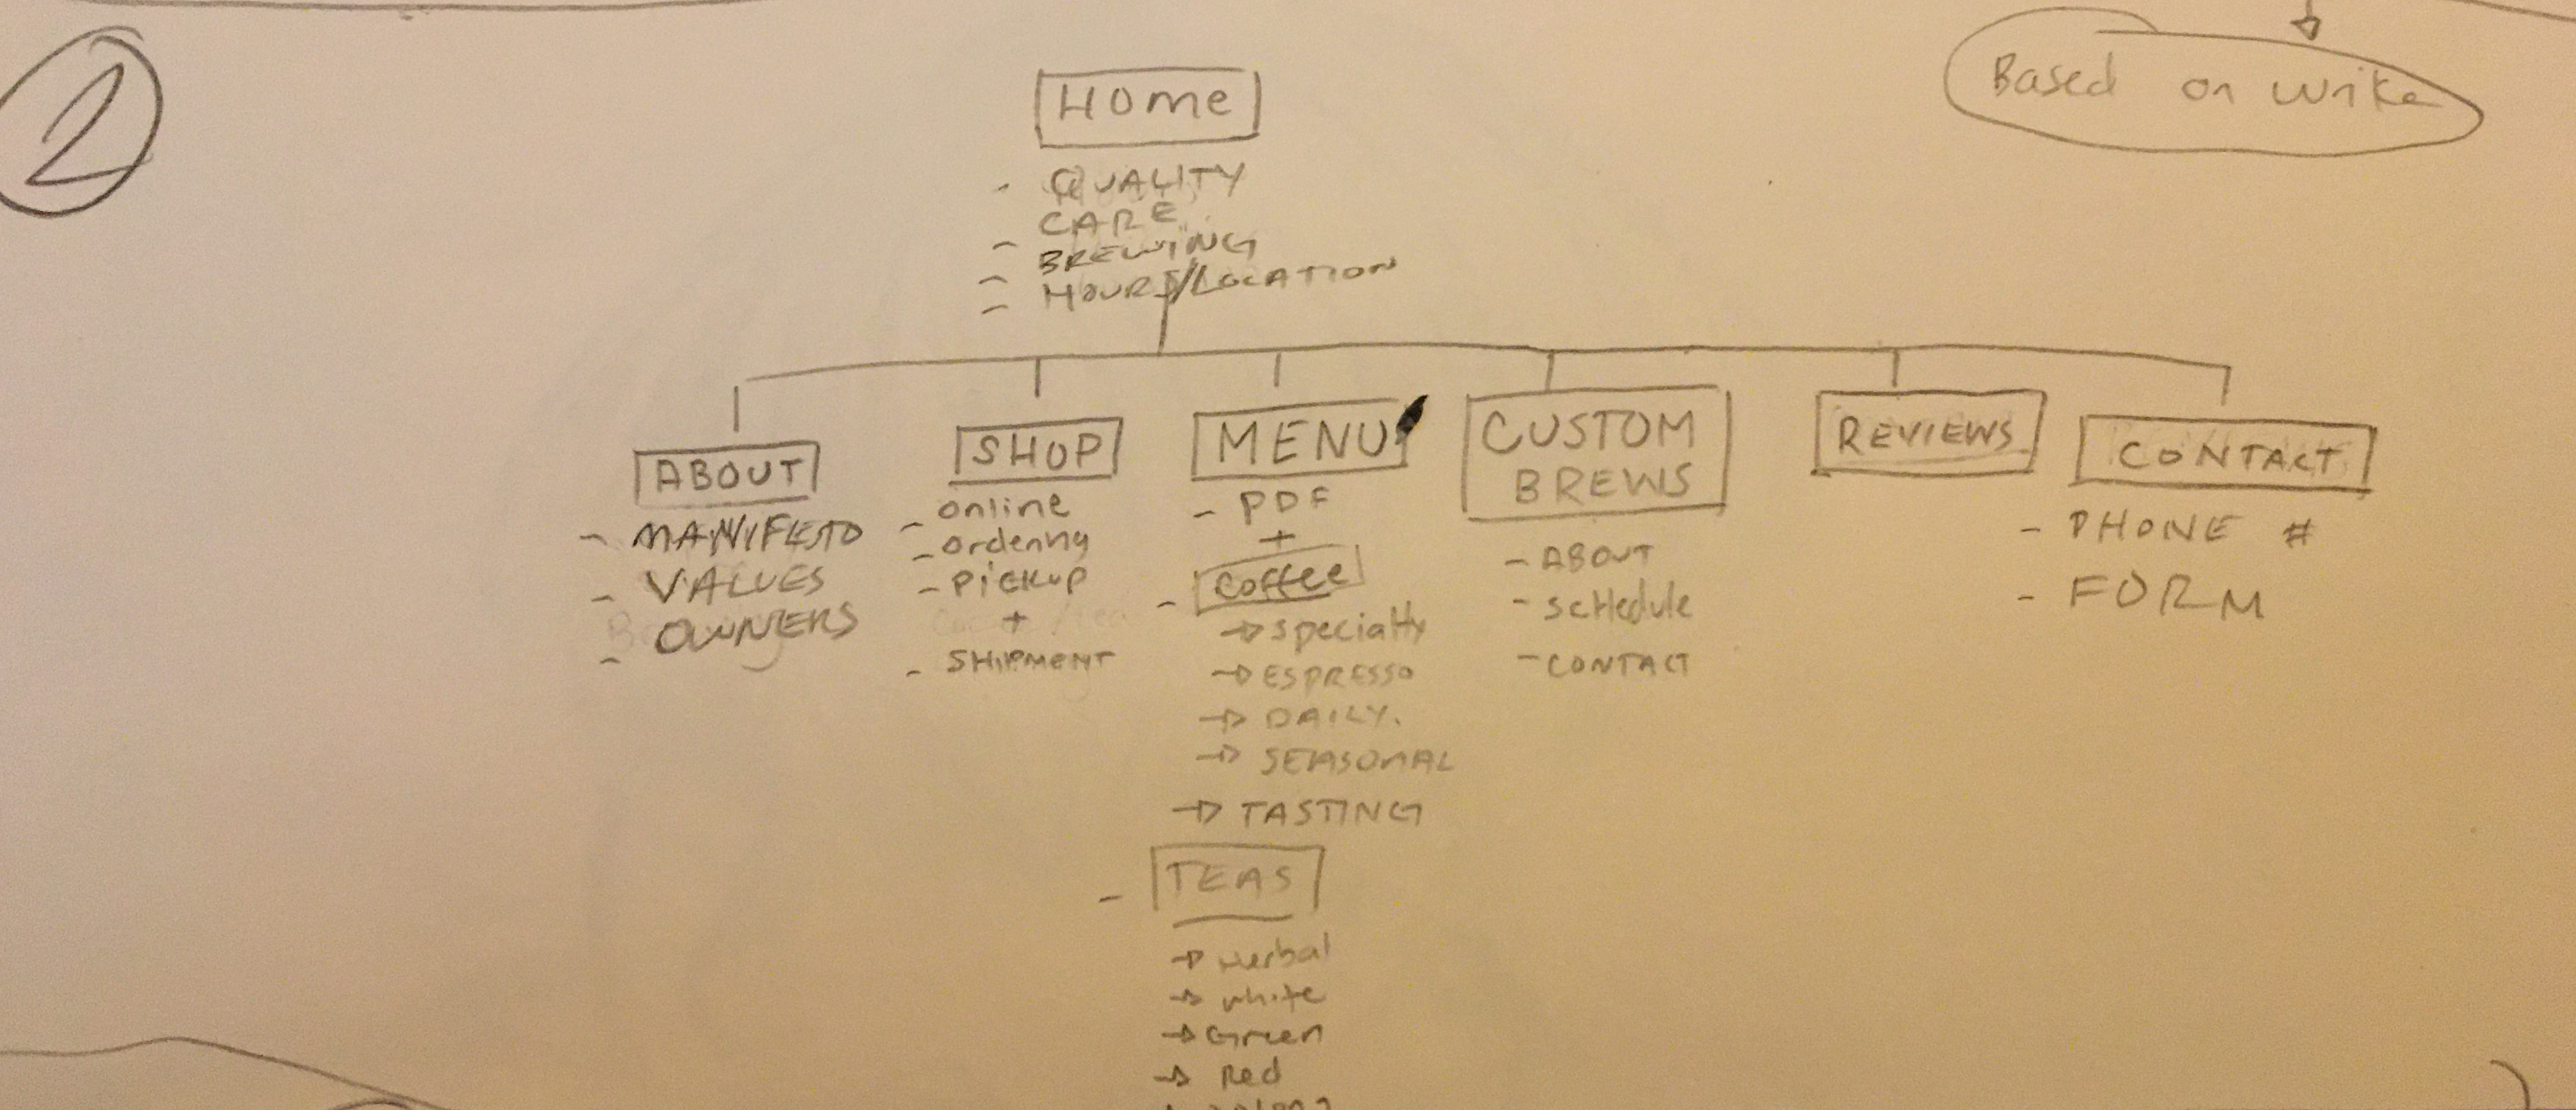 2
Based on Wrike
Home
- QUALITY
- CARE
- BREWING
- HOURS/LOCATION
ABOUT
- MANIFESTO
- VALUES
- OWNERS
SHOP
- online
- ordering
- PICKUP
+
- SHIPMENT
MENU
- PDF
+
- Coffee
→ specialty
→ ESPRESSO
→ DAILY.
→ SEASONAL
→ TASTING
- TEAS
→ Herbal
→ white
→ Green
→ Red
CUSTOM
BREWS
- ABOUT
- scHedule
- CONTACT
REVIEWS
CONTACT
- PHONE #
- FORM